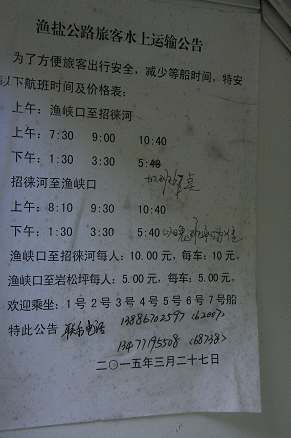 渔盐公路旅客水上运输公告
为了方便旅客出行安全，减少等船时间，特安
以下航班时间及价格表：
上午：渔峡口至招徕河
上午：7:30 9:00 10:40
下午：1:30 3:30 5:40
招徕河至渔峡口
上午：8:10 9:30 10:40
下午：1:30 3:30 5:40
渔峡口至招徕河每人：10.00 元，每车：10 元，
渔峡口至岩松坪每人：5.00 元，每车：5.00 元，
欢迎乘坐：1 号 2 号 3 号 4 号 5 号 6 号 7 号船
特此公告 联系电话 13886702597 (62007)
13477195508 (68738)
二〇一五年三月二十七日